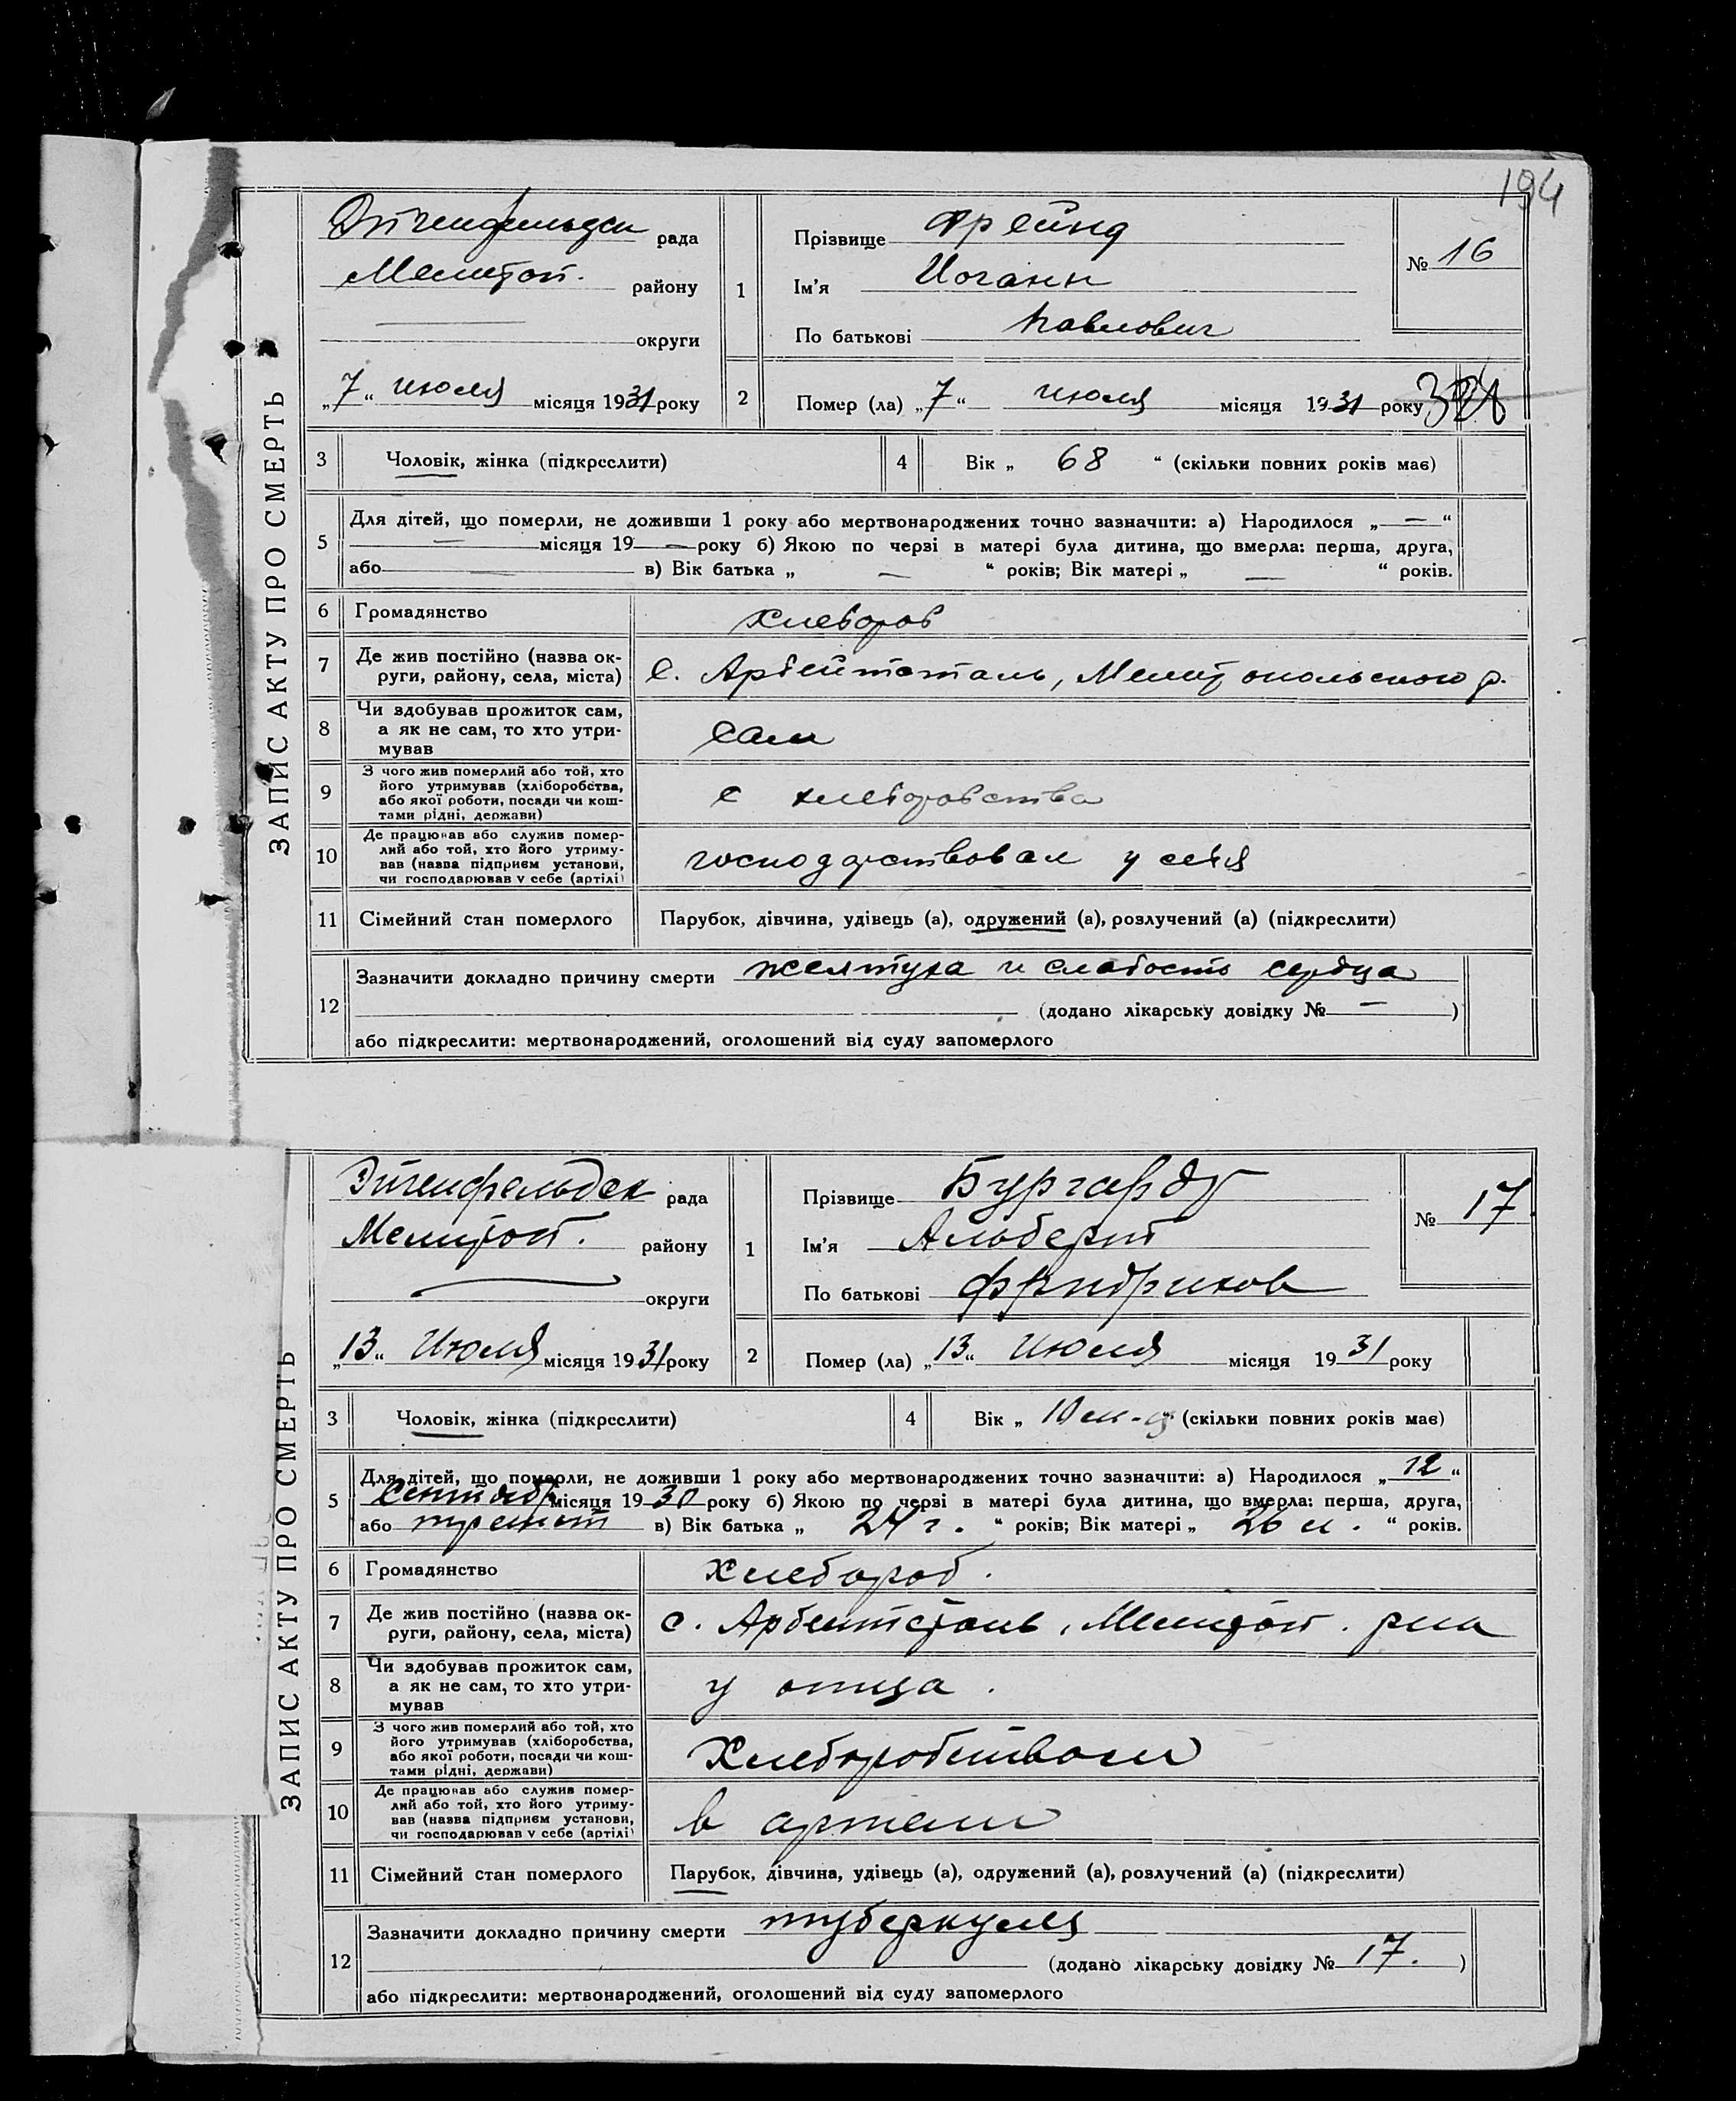 194
ЗАПИС АКТУ ПРО СМЕРТЬ
рада
Мелитоп. району
округи
„7“ июля місяця 1931 року
1
Прізвище Фрейнд
Ім'я Иоганн
По батькові Павлович
№ 16
2
Помер (ла) „7“ июля місяця 1931 року
3
Чоловік, жінка (підкреслити)
4
Вік „ 68 “ (скільки повних років має)
5
Для дітей, що померли, не доживши 1 року або мертвонароджених точно зазначити: а) Народилося „ — “
— місяця 19 — року б) Якою по черзі в матері була дитина, що вмерла: перша, друга,
або — в) Вік батька „ — “ років; Вік матері „ — “ років.
6
Громадянство
хлебороб
7
Де жив постійно (назва округи, району, села, міста)
с. Арбейтсталь, Мелитопольского р.
8
Чи здобував прожиток сам,
а як не сам, то хто утри-
мував
сам
9
З чого жив померлий або той, хто
його утримував (хліборобства,
або якої роботи, посади чи кош-
тами рідні, держави)
с хлеборобства
10
Де працював або служив помер-
лий або той, хто його утриму-
вав (назва підприєм установи,
чи господарював у себе (артілі)
господарствовал у себя
11
Сімейний стан померлого
Парубок, дівчина, удівець (а), одружений (а), розлучений (а) (підкреслити)
12
Зазначити докладно причину смерти желтуха и слабость сердца
(додано лікарську довідку № — )
або підкреслити: мертвонароджений, оголошений від суду запомерлого
ЗАПИС АКТУ ПРО СМЕРТЬ
Эйгенфельдск рада
Мелитоп. району
округи
„13“ Июля місяця 1931 року
1
Прізвище Бургардт
Ім'я Альберт
По батькові Фридрихов
№ 17
2
Помер (ла) „13“ Июля місяця 1931 року
3
Чоловік, жінка (підкреслити)
4
Вік „ 10 м-ц “ (скільки повних років має)
5
Для дітей, що померли, не доживши 1 року або мертвонароджених точно зазначити: а) Народилося „12“
Сентябр місяця 1930 року б) Якою по черзі в матері була дитина, що вмерла: перша, друга,
або в) Вік батька „ 24 г. “ років; Вік матері „ 26 л. “ років.
6
Громадянство
Хлебороб.
7
Де жив постійно (назва округи, району, села, міста)
с. Арбейтсталь, Мелитоп. рна
8
Чи здобував прожиток сам,
а як не сам, то хто утри-
мував
у отца.
9
З чого жив померлий або той, хто
його утримував (хліборобства,
або якої роботи, посади чи кош-
тами рідні, держави)
Хлеборобством
10
Де працював або служив помер-
лий або той, хто його утриму-
вав (назва підприєм установи,
чи господарював у себе (артілі)
в артели
11
Сімейний стан померлого
Парубок, дівчина, удівець (а), одружений (а), розлучений (а) (підкреслити)
12
Зазначити докладно причину смерти туберкулез
(додано лікарську довідку № 17. )
або підкреслити: мертвонароджений, оголошений від суду запомерлого